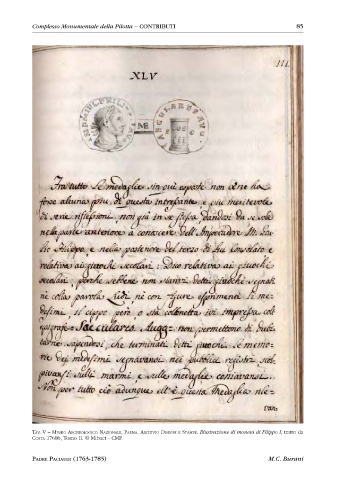 Complesso Monumentale della Pilotta – CONTRIBUTI 85
111.
XLV
IMP IVL PHILIPPVS AVG
Æ
SAECVLARES AVGG
COS III
Fra tutte le medaglie sin quì esposte non avvene ha
forse alcuna più di questa interessante, e più meritevole
di serie riflessioni, non già in se stessa dandosi da se sola
nella parte anteriore a conoscere dell'Imperadore
Filippo, e nella posteriore del terzo di lui Consolato e
relativa ai giuochi secolari. Dico relativa ai giuochi
secolari, perchè sebbene non sianvi detti giuochi segnati
nè colla parola: Ludi, nè con figure esprimenti li me-
desimi, il cippo però o sia colonnetta ivi impressa coll'
epigrafe Saeculares Augg: non permettono di dubi-
tarne sapendosi, che terminati detti giuochi le memo-
rie dei medesimi segnavansi nei pubblici registri, scol-
pivansi sulli marmi e sulle medaglie coniavansi.
Non per tutto ciò adunque ell'è questa Medaglia me-
TAV. V – MUSEO ARCHEOLOGICO NAZIONALE, PARMA. ARCHIVIO DISEGNI E STAMPE. Illustrazione di moneta di Filippo I, tratto da
COSTA 1768b, TOMO II. © MIBACT – CMP.
PADRE PACIAUDI (1763-1785) M.C. Burani